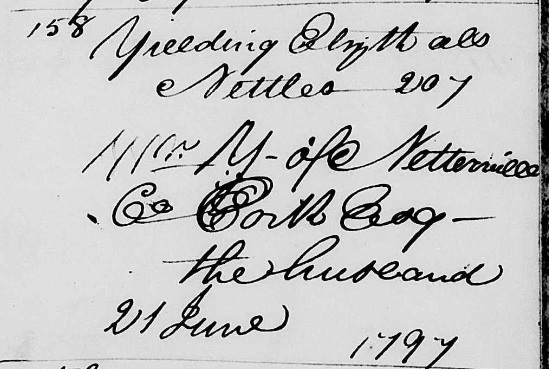 158 Yielding Elizth als
Nettles 207
Wm Y- of Netterville
Co Cork Esq-
the husband
21 June 1797